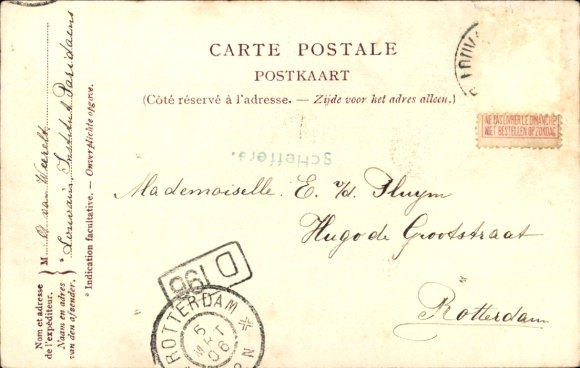 CARTE POSTALE
POSTKAART
(Côté réservé à l'adresse. — Zijde voor het adres alleen.)
LOUV
NE PAS LIVRER LE DIMANCHE
NIET BESTELLEN OP ZONDAG
scheffers.
Mademoiselle. E. v/d. Pluym
Hugo de Grootstraat
Rotterdam
D 196
ROTTERDAM
5 MRT
06
N
Nom et adresse de l'expéditeur.
Naam en adres van den afzender.
M
van
Louvain. Institut Paridaens
* Indication facultative. — Onverplichte opgave.